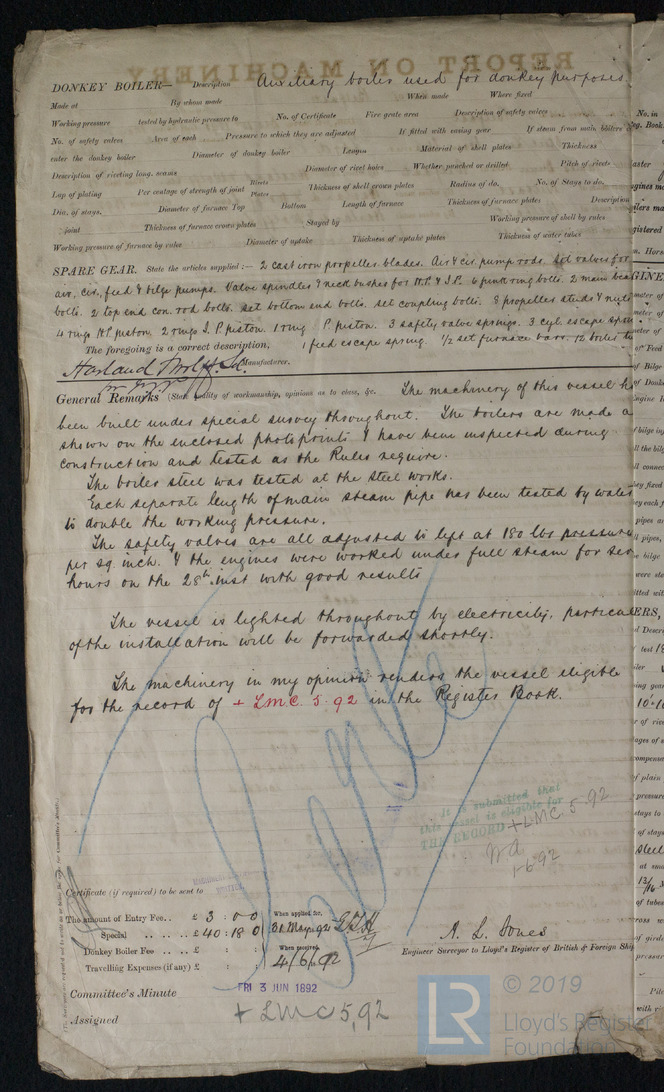 REPORT ON MACHINERY
DONKEY BOILER— Description Auxiliary boiler used for donkey purposes
Made at By whom made When made Where fixed
Working pressure tested by hydraulic pressure to No. of Certificate Fire grate area Description of safety valves
No. of safety valves Area of each Pressure to which they are adjusted If fitted with easing gear If steam from main boilers
enter the donkey boiler Diameter of donkey boiler Length Material of shell plates Thickness
Description of riveting long. seams Diameter of rivet holes Whether punched or drilled Pitch of rivets
Lap of plating Per centage of strength of joint Rivets Plates Thickness of shell crown plates Radius of do. No. of Stays to do.
Dia. of stays. Diameter of furnace Top Bottom Length of furnace Thickness of furnace plates Description
joint Thickness of furnace crown plates Stayed by Working pressure of shell by rules
Working pressure of furnace by rules Diameter of uptake Thickness of uptake plates Thickness of water tubes
SPARE GEAR. State the articles supplied :— 2 cast iron propeller blades. Air & cir. pump rods. Set valves for
air, cir, feed & bilge pumps. Valve spindles & neck bushes for H.P. & I.P. 6 junk ring bolts. 2 main
bolts. 2 top end con. rod bolts. set bottom end bolts. set coupling bolts. 8 propeller studs & nuts
4 rings H.P. piston. 2 rings I.P. piston. 1 ring P. piston. 3 safety valve springs. 3 cyl. escape
The foregoing is a correct description, 1 feed escape spring. ½ set furnace bars. 12 boiler
Harland Wolff Ld. Manufacturer.
General Remarks (State quality of workmanship, opinions as to class, &c. The machinery of this vessel
been built under special survey throughout. The boilers are made a
shown on the enclosed photoprints & have been inspected during
construction and tested as the Rules require.
The boiler steel was tested at the steel works.
Each separate length of main steam pipe has been tested by water
to double the working pressure.
The safety valves are all adjusted to lift at 180 lbs pressure
per sq. inch. & the engines were worked under full steam for
hours on the 28th inst with good results
The vessel is lighted throughout by electricity, particul
of the installation will be forwarded shortly.
The machinery in my opinion renders the vessel eligible
for the record of + LMC. 5.92 in the Register Book.
It is submitted that
this vessel is eligible for
THE RECORD + LMC 5.92
1.6.92
Certificate (if required) to be sent to
The amount of Entry Fee.. £ 3 : 0 : 0 When applied for,
Special .. £ 40 : 18 : 0 31 May 92
Donkey Boiler Fee .. £ : : When received,
Travelling Expenses (if any) £ : : 4/6/92
A. L. Jones
Engineer Surveyor to Lloyd's Register of British & Foreign Ship
Committee's Minute FRI 3 JUN 1892
Assigned + LMC 5,92
LR
© 2019
Lloyd's Register
Foundation